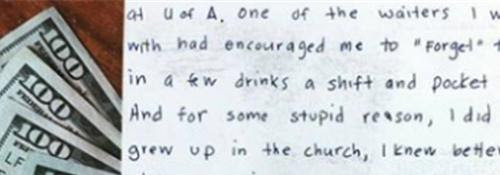 100
100
100
LF
at U of A. One of the waiters I w
with had encouraged me to "Forget" t
in a few drinks a shift and pocket
And for some stupid reason, I did
grew up in the church, I knew better